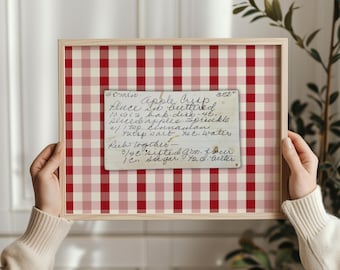 Oven 350°
Apple Crisp
Place in buttered
10 x 6 x 2 bak. dish - 4 c.
sliced apples sprinkle
w/ 1 tsp. cinnamon
salt ¼ c water
Rub together -
¾ c sifted flour
1 c. sugar butter